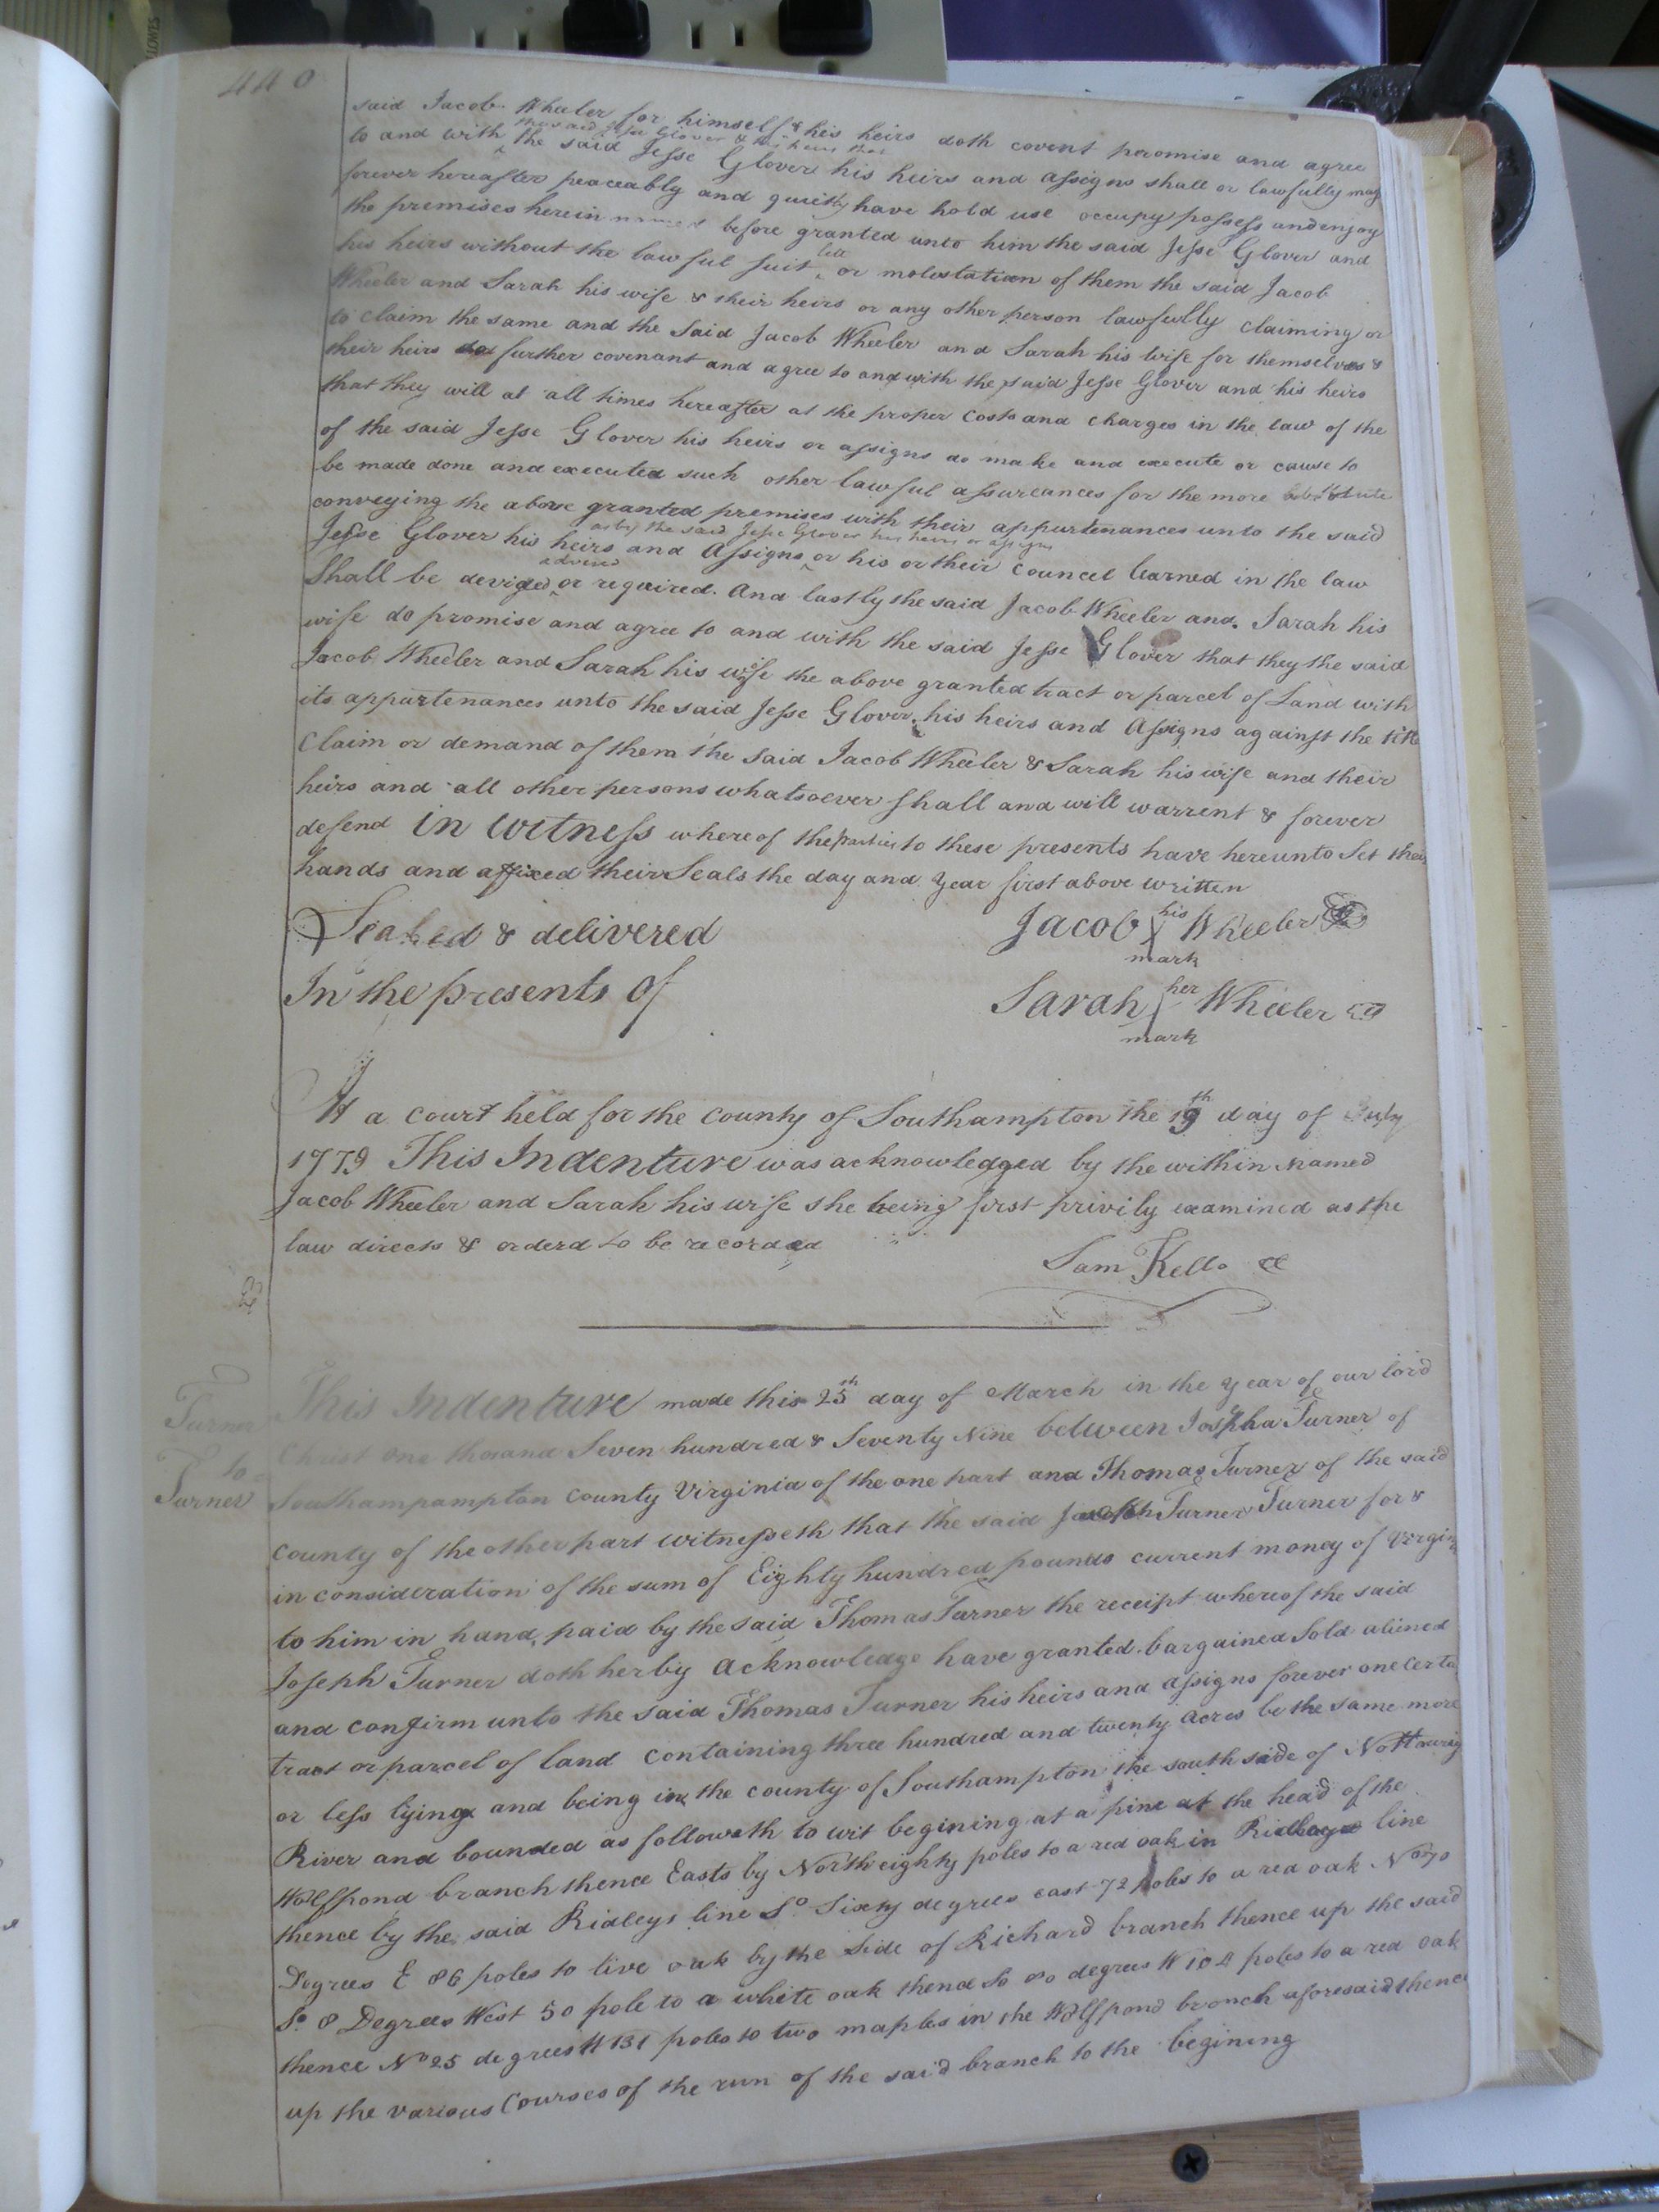 440
said Jacob Wheeler for himself & his heirs doth covent promise and agree
the said Jesse Glover & his heirs that
to and with the said Jesse Glover his heirs and assigns shall or lawfully may
forever hereafter peaceably and quietly have hold use occupy possess and enjoy
the premises herein before granted unto him the said Jesse Glover and
his heirs without the lawful suit lett or molestation of them the said Jacob
Wheeler and Sarah his wife & their heirs or any other person lawfully claiming or
to claim the same and the said Jacob Wheeler and Sarah his wife for themselves &
their heirs do further covenant and agree to and with the said Jesse Glover and his heirs
that they will at all times hereafter at the proper costs and charges in the law of the
of the said Jesse Glover his heirs or assigns do make and execute or cause to
be made done and executed such other lawful assurances for the more
conveying the above granted premises with their appurtenances unto the said
as by the said Jesse Glover his heirs or assigns
Jesse Glover his heirs and Assigns or his or their councel learned in the law
advised
Shall be devized or required. And lastly the said Jacob Wheeler and Sarah his
wife do promise and agree to and with the said Jesse Glover that they the said
Jacob Wheeler and Sarah his wife the above granted tract or parcel of Land with
its appartenances unto the said Jesse Glover his heirs and Assigns against the title
Claim or demand of them the said Jacob Wheeler & Sarah his wife and their
heirs and all other persons whatsoever shall and will warrent & forever
defend in witness whereof the parties to these presents have hereunto Set their
hands and affixed their Seals the day and year first above written
Sealed & delivered
In the presents of
Jacob his Wheeler
mark
Sarah her Wheeler
mark
At a court held for the county of Southampton the 19th day of July
1779 This Indenture was acknowledged by the within named
Jacob Wheeler and Sarah his wife she being first privily examined as the
law directs & orderd to be recorded
Sam Kello CC
Turner
to
Turner
This Indenture made this 25th day of March in the year of our lord
Christ one thosand Seven hundred & Seventy Nine between Josepha Turner of
Southampampton county Virginia of the one part and Thomas Turner of the said
county of the other part witnesseth that the said Joseph Turner Turner for &
in consideration of the sum of Eighty hundred pounds current money of Virginia
to him in hand paid by the said Thomas Turner the receipt whereof the said
Joseph Turner doth herby acknowledge have granted bargained Sold aliened
and confirm unto the said Thomas Turner his heirs and assigns forever one certa
tract or parcel of land containing three hundred and twenty acres be the same more
or less lying and being in the county of Southampton the south side of Nottoway
River and bounded as followeth to wit begining at a pine at the head of the
Wolfpond branch thence Easts by North eighty poles to a red oak in Ridleys line
thence by the said Ridleys line So. Sixty degrees east 72 poles to a red oak No 70
Degrees E 86 poles to live oak by the side of Richard branch thence up the said
So. 8 Degrees West 50 pole to a white oak thend So 80 degrees W 104 poles to a red oak
thence No 25 degrees W 131 poles to two maples in the Wolfpond branch aforesaid thence
up the various Courses of the run of the said branch to the begining